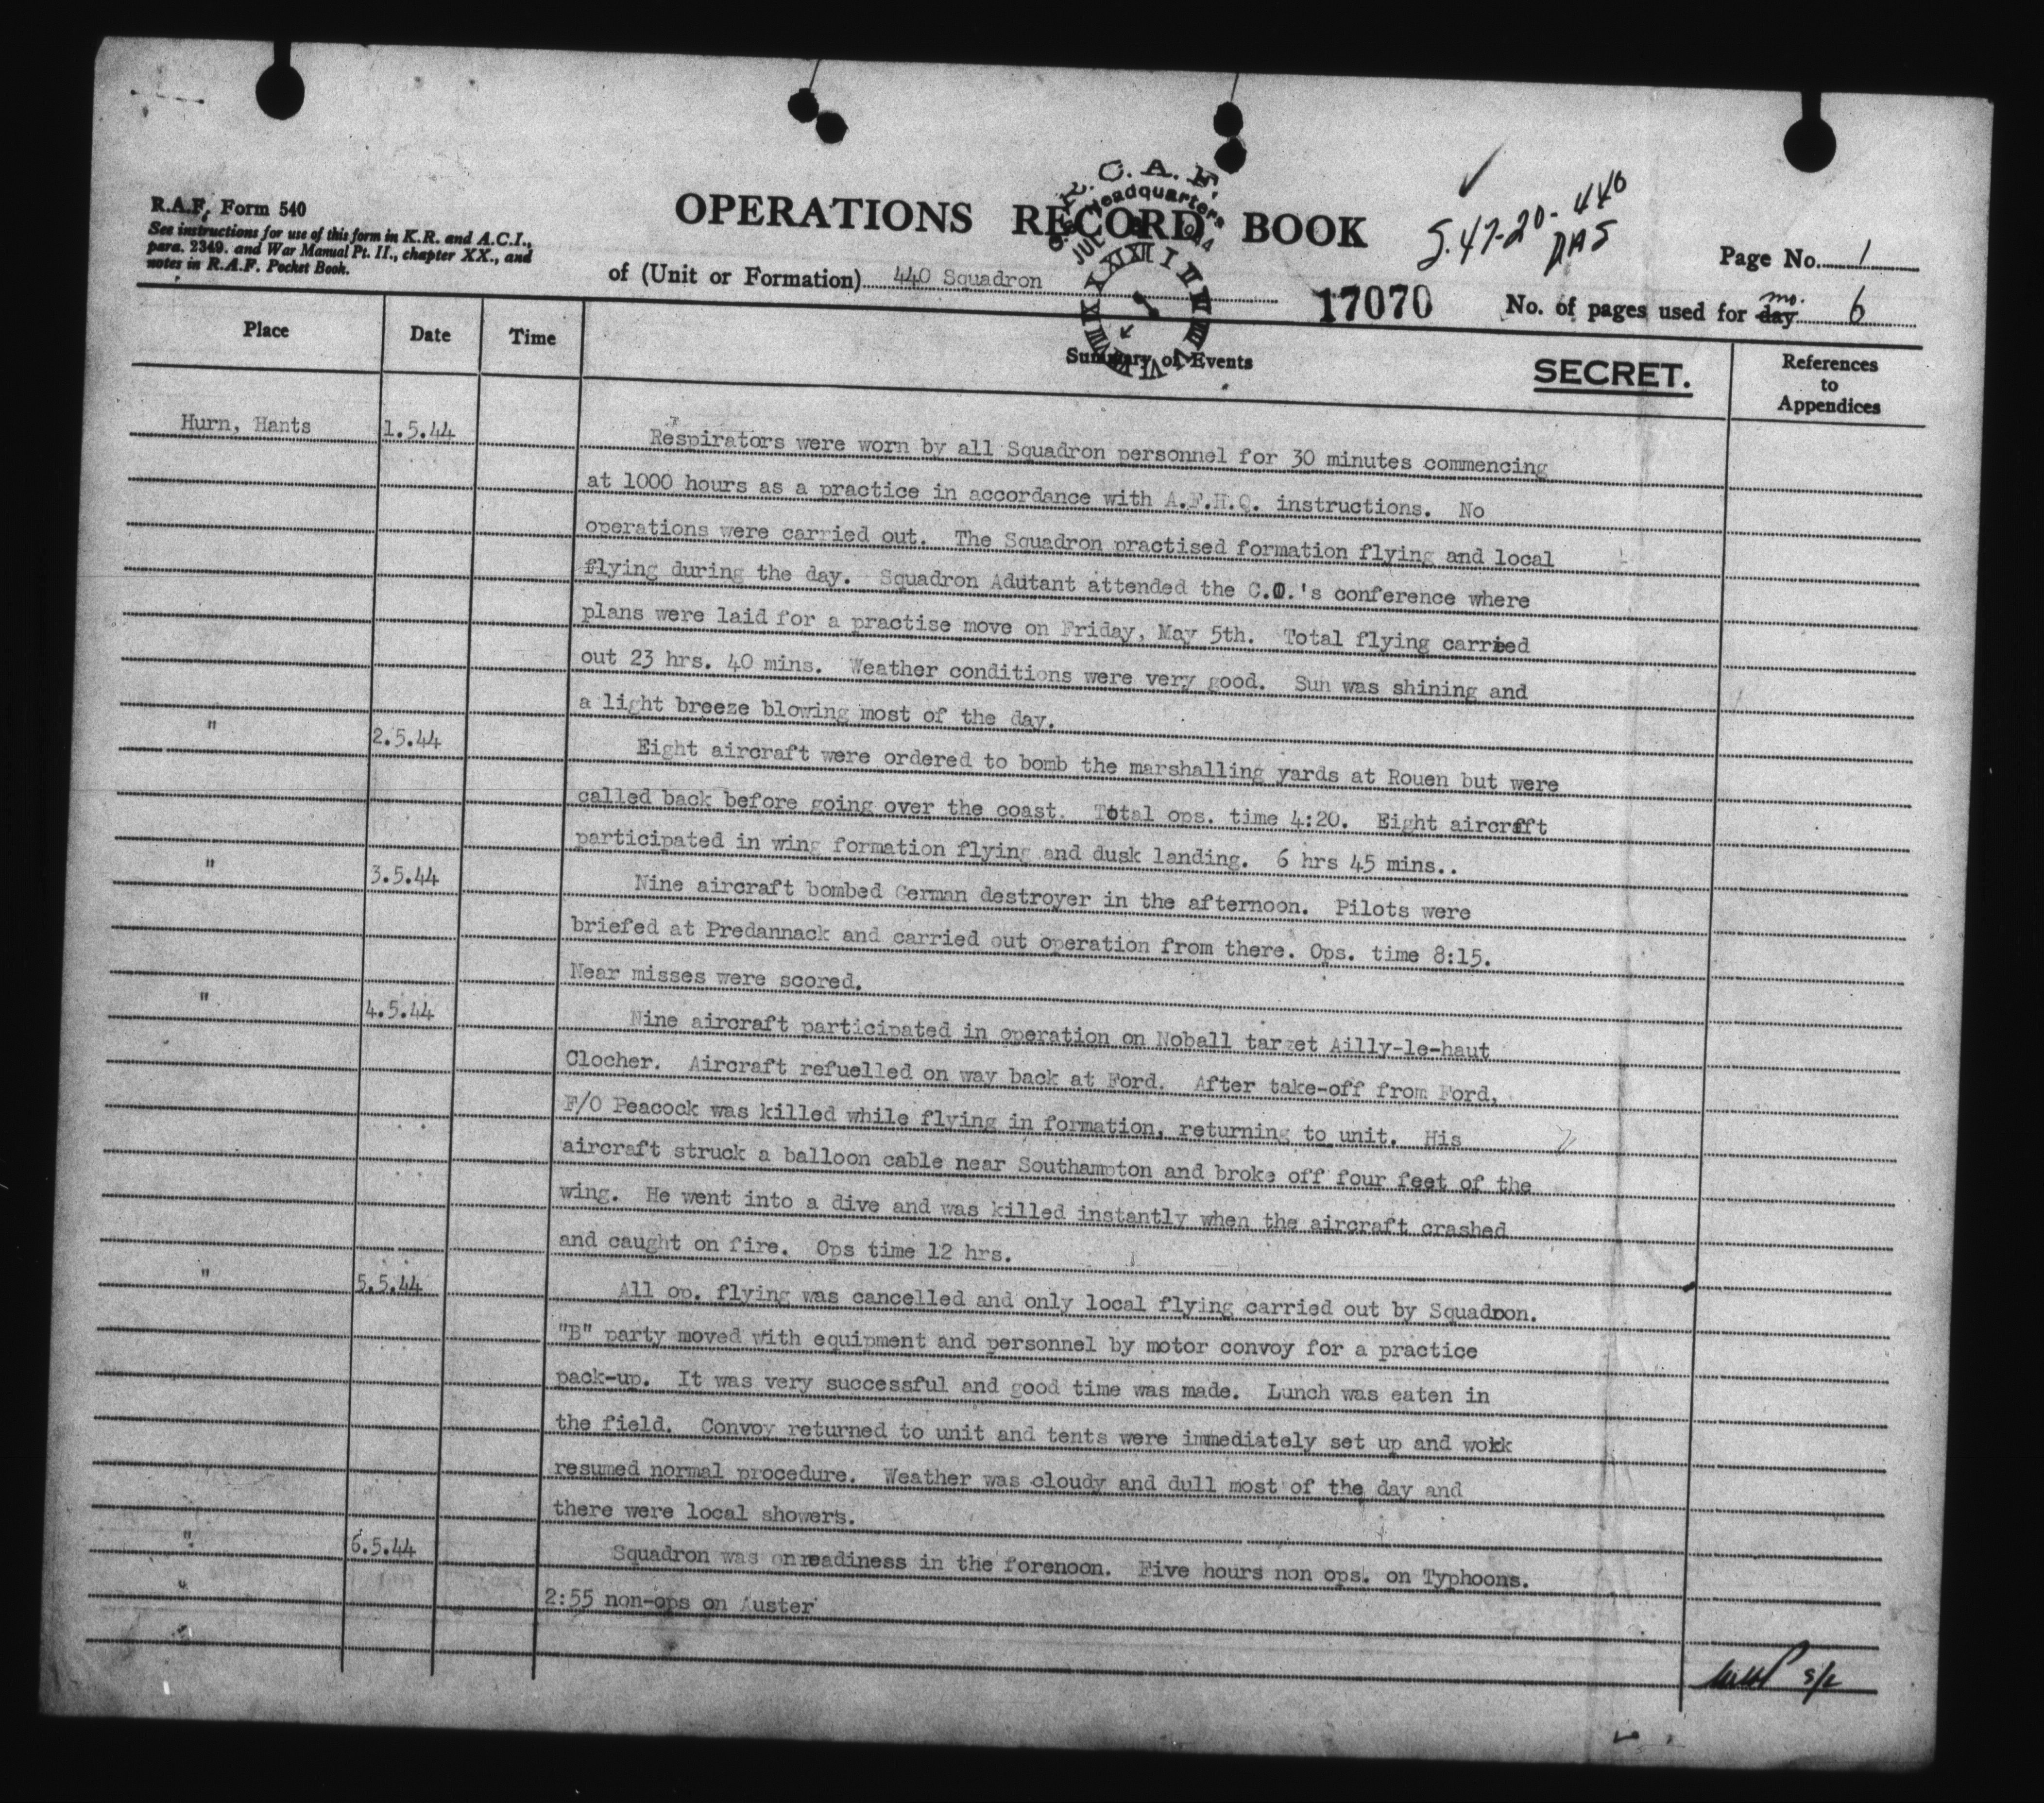 R.A.F. Form 540
See instructions for use of this form in K.R. and A.C.I.,
para. 2349. and War Manual Pt. II., chapter XX., and
notes in R.A.F. Pocket Book.
OPERATIONS RECORD BOOK
of (Unit or Formation) 440 Squadron
R.C.A.F.
Headquarters
JUL
17070
S.47-20-440
DAS
Page No. 1
No. of pages used for day mo. 6
Place Date Time Summary of Events
SECRET.
References
to
Appendices
Hurn, Hants 1.5.44 Respirators were worn by all Squadron personnel for 30 minutes commencing
at 1000 hours as a practice in accordance with A.F.H.Q. instructions. No
operations were carried out. The Squadron practised formation flying and local
flying during the day. Squadron Adutant attended the C.O.'s conference where
plans were laid for a practise move on Friday, May 5th. Total flying carried
out 23 hrs. 40 mins. Weather conditions were very good. Sun was shining and
a light breeze blowing most of the day.
" 2.5.44 Eight aircraft were ordered to bomb the marshalling yards at Rouen but were
called back before going over the coast. Total ops. time 4:20. Eight aircraft
participated in wing formation flying and dusk landing. 6 hrs 45 mins..
" 3.5.44 Nine aircraft bombed German destroyer in the afternoon. Pilots were
briefed at Predannack and carried out operation from there. Ops. time 8:15.
Near misses were scored.
" 4.5.44 Nine aircraft participated in operation on Noball target Ailly-le-haut
Clocher. Aircraft refuelled on way back at Ford. After take-off from Ford,
F/O Peacock was killed while flying in formation, returning to unit. His
aircraft struck a balloon cable near Southampton and broke off four feet of the
wing. He went into a dive and was killed instantly when the aircraft crashed
and caught on fire. Ops time 12 hrs.
" 5.5.44 All op. flying was cancelled and only local flying carried out by Squadron.
"B" party moved with equipment and personnel by motor convoy for a practice
pack-up. It was very successful and good time was made. Lunch was eaten in
the field. Convoy returned to unit and tents were immediately set up and work
resumed normal procedure. Weather was cloudy and dull most of the day and
there were local showers.
" 6.5.44 Squadron was on readiness in the forenoon. Five hours non ops. on Typhoons.
" 2:55 non-ops on Auster
"
S/L